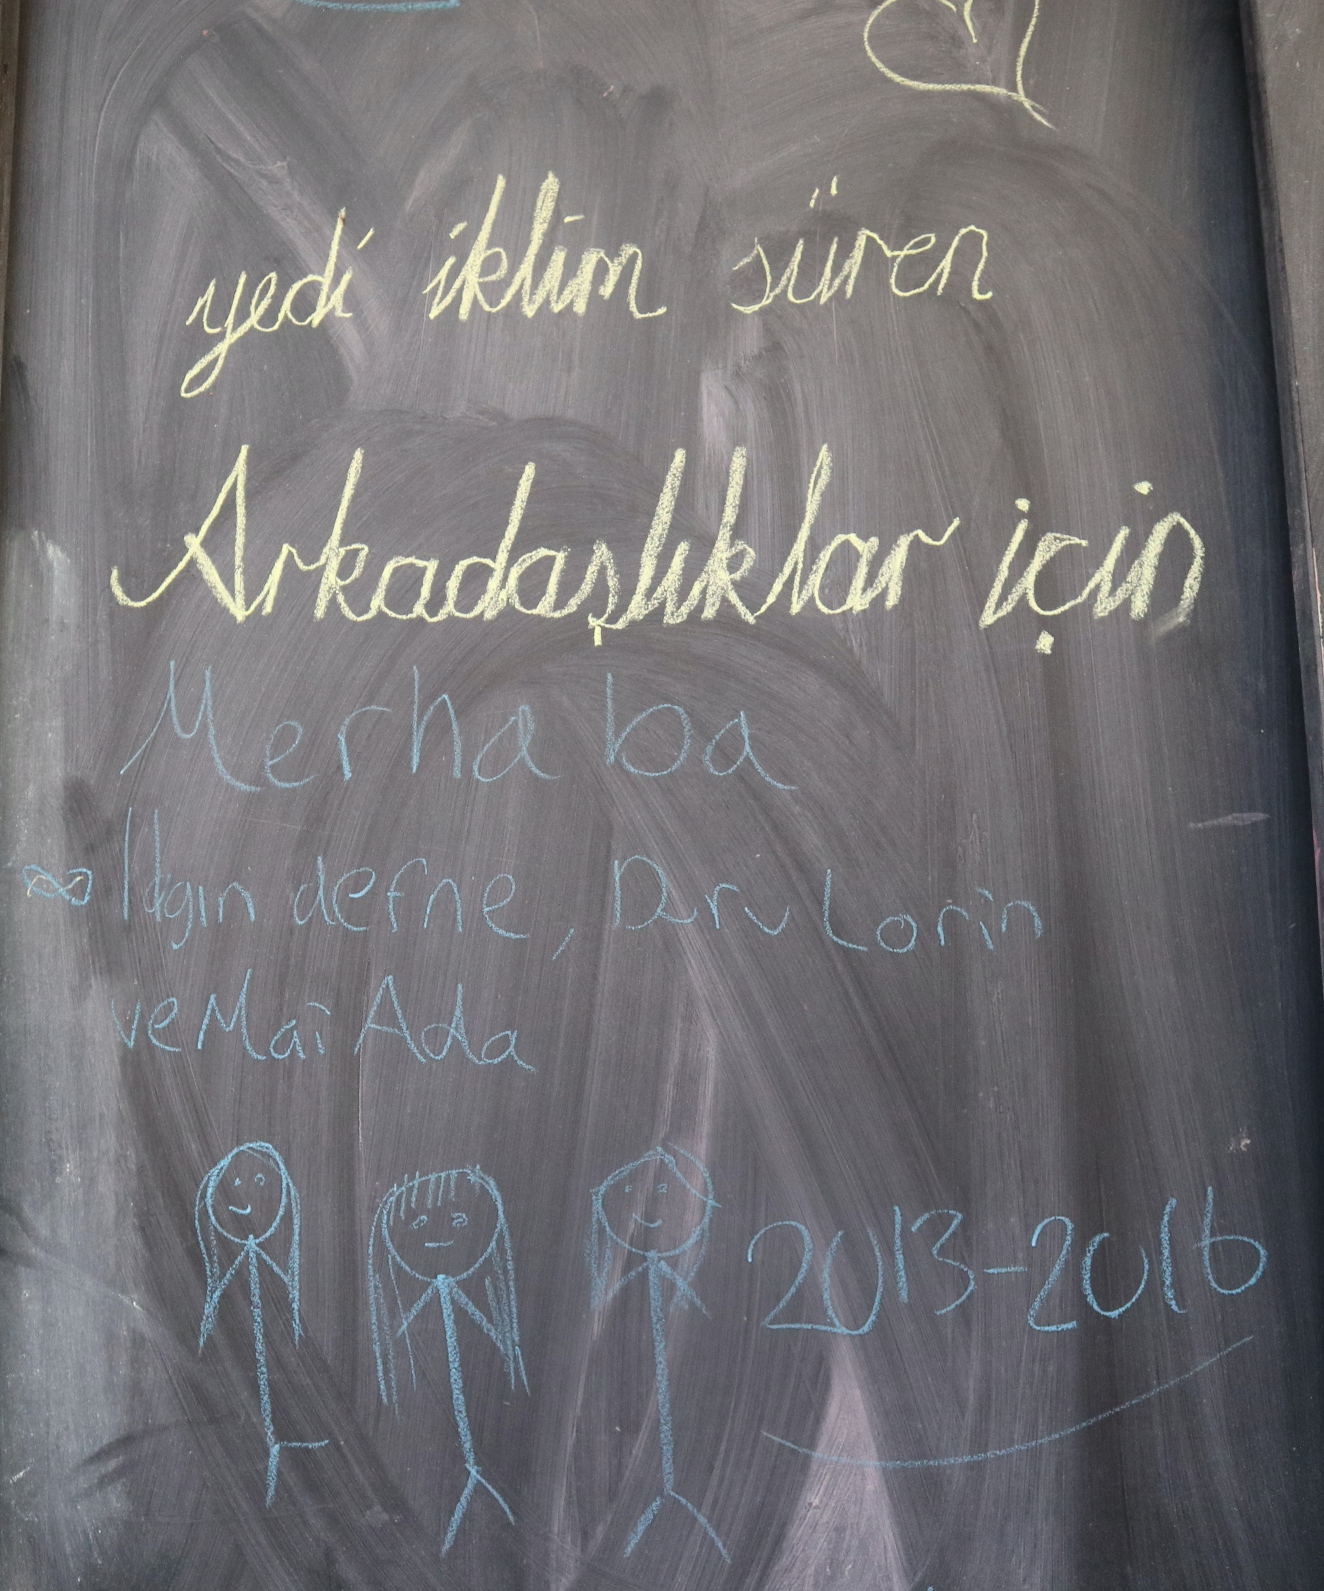 yedi iklim süren
Arkadaşlıklar için
Merhaba
Ilgın defne, Duru Lorin
ve Mai Ada
2013-2016